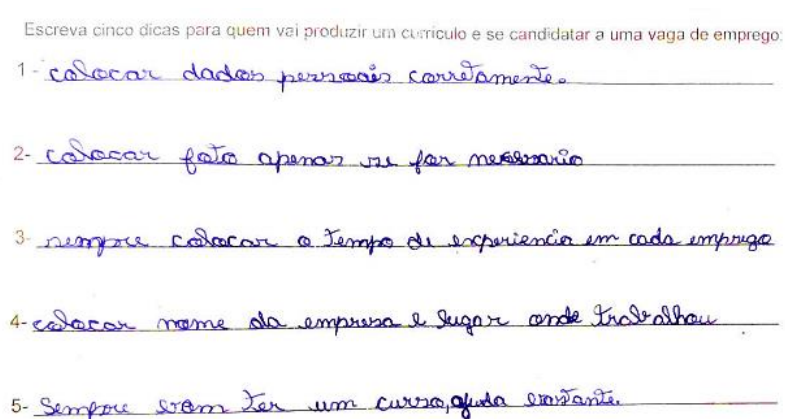 Escreva cinco dicas para quem vai produzir um currículo e se candidatar a uma vaga de emprego:
1- colocar dados pessoais corretamente.
2- colocar foto apenas se for necessario
3- sempre colocar o tempo de experiencia em cada emprego
4- colocar nome da empresa e lugar onde trabalhou
5- Sempre bom ter um curso, ajuda bastante.